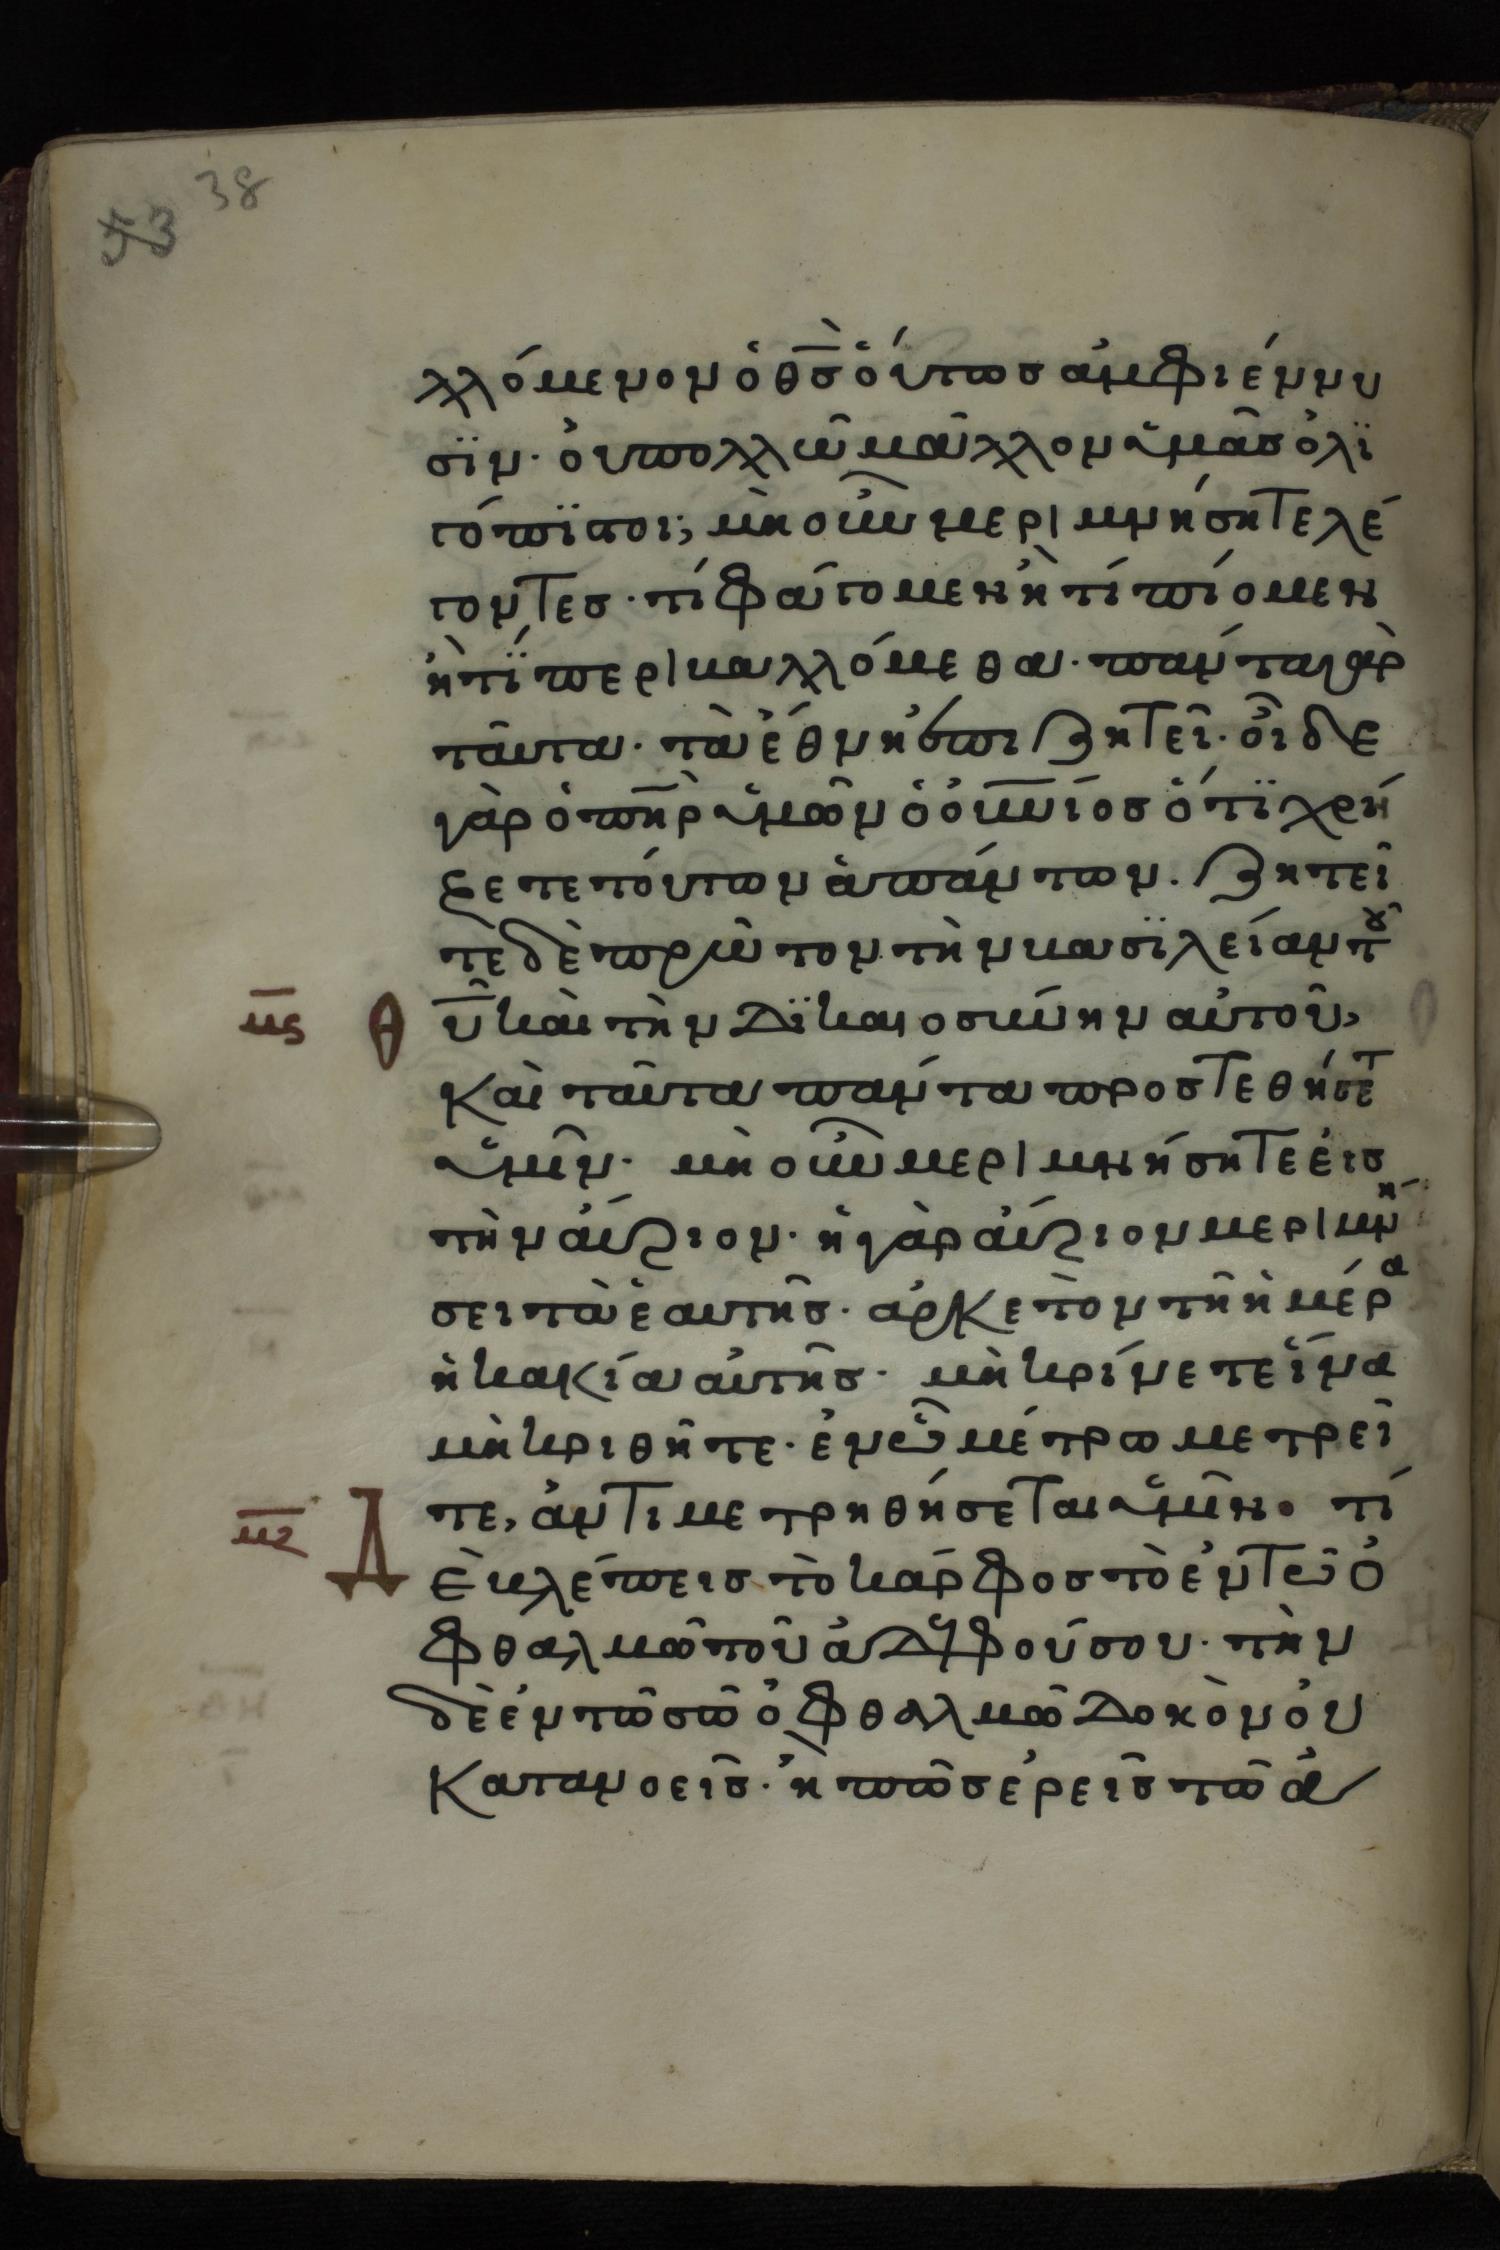 53 38
λλόμενον ὁ θ̅σ̅ ὁύτωσ ἀμφιέννυ
σϊν· ὀυ πολλῶ μᾶλλον ὑμᾶσ ὀλϊ
γόπϊστοι; μὴ οὖν μεριμνήσητε λέ
γοντεσ· τί φάγομεν ἢ τί πίομεν
ἢ τί περιβαλλόμεθα· πάντα γὰρ
ταῦτα· τὰ ἔθνη ἐπιζητεῖ· ὀῖδε
γὰρ ὁ π̅η̅ρ̅ ὑμῶν ὁ ὀυ̅ν̅ιοσ ὅτϊ χρή
ζετε τόυτων ἁπάντων. ζητεῖ
τὲ δὲ πρῶτον τὴν βασϊλείαν τοῦ
μ̅ϛ̅ Θ υ̅ καὶ τὴν δϊκαιοσύνην αὐτοῦ,
καὶ ταῦτα πάντα προστεθήσετ
ὑμῖν· μὴ οὖν μεριμνήσητε ἐισ
τὴν ἄυριον· ἡ γὰρ ἄυριον μεριμνή
σει τὰ ἑαυτῆσ· ἀρκετὸν τῆ ἡμέρα
ἡ κακία αὐτῆσ· μὴ κρίνετε ἵνα
μὴ κριθῆτε· ἐν ὧ μέτρω μετρεῖ
τε, ἀντιμετρηθήσεται ὑμῖν· τί
μ̅ζ̅ Δ ὲ βλέπεισ τὸ κάρφοσ τὸ ἐν τῶ ὀ
φθαλμῶ τοῦ ἀδλφού σου· τὴν
δὲ ἐν τῶ σῶ ὀφθαλμῶ δοκὸν ὀυ
κατανοεῖσ· ἢ πῶσ ἐρεῖσ τῶ ἀ